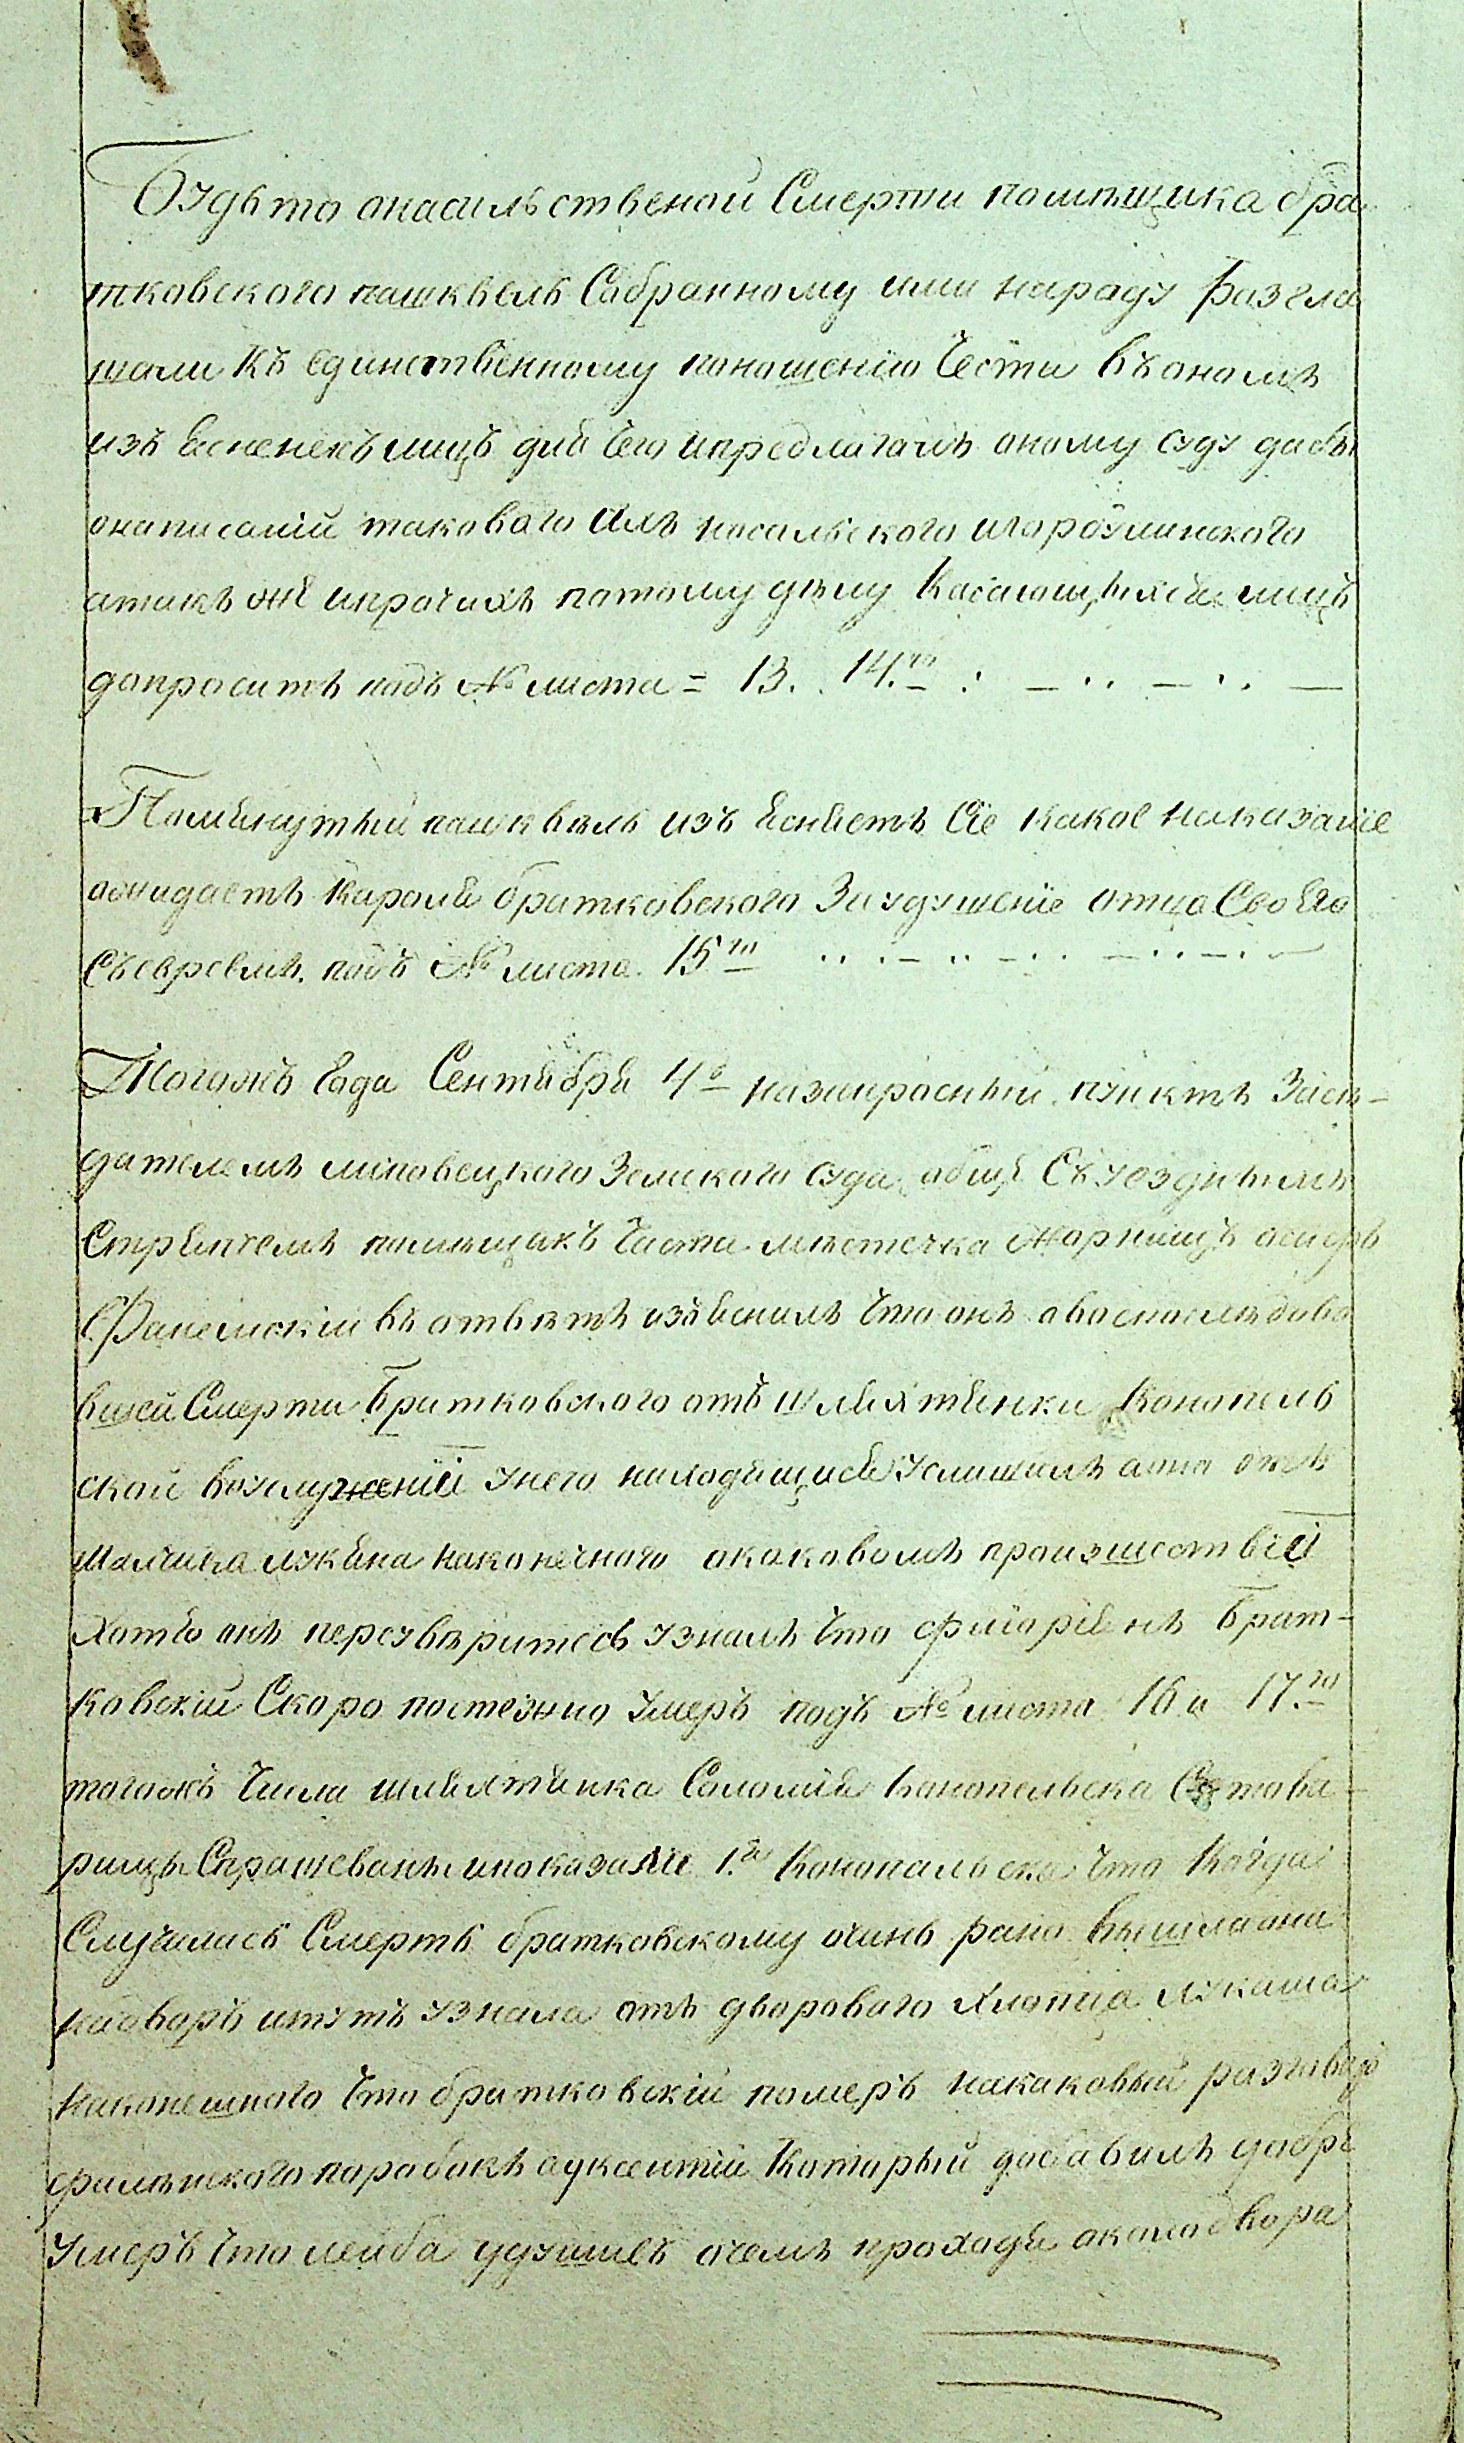 Будьто онасильственой Смерти помѣщика бра
тковского пашквель Собранному ими народу разгла
шали къ единственному поношенію Чести въ ономъ
изъ ясненехъ лицъ для чего ипредлагалъ оному суду дабы
онаписаніи таковаго
атакъ же ипрочихъ потому дѣлу Касающихся лицъ
допроситъ подъ № листа = 13. 14.го
Помянутый пашквѣль изъ ясняетъ Сіе какое наказаніе
ожидаетъ кароля братковского Заудушеніе отца Своего
съевреемъ. подъ № листа. 15го
Тогожъ Года Сентября 4о назапросный пунктъ Засѣ-
дателемъ липовецкого Земского суда обще Съуезднымъ
Стряпчемъ помѣщикъ Части мѣстечка Жорнищъ осифъ
въ отвѣтъ изъяснилъ что онъ овоспослѣдова
вшей Смерти Братковского отъ шляхтянки Конопель
ской вуслуженіи унего находящися услишалъ аона отъ
Малчика лукяна наконечного окаковомъ произшествіи
Хотяо онъ переувѣритсь узналъ что флоріенъ Брат-
ковскій Скоро постежно умеръ подъ № листа 16 и 17.го
тогожъ Числа шляхтянка Соломія Конопельска Стова-
рищы Спрашеваны ипоказали 1.я Конопальска что Когда
Случилась Смерть братковскому очинь рано вышла она
надворъ итутъ узнала отъ двороваго Хлопца лукаша
наконешного что братковскій померъ накаковый разговор
фалѣнского поробокъ ауксентій Который добавилъ добре
умеръ что лейба удушилъ очемъ проходя околодвора